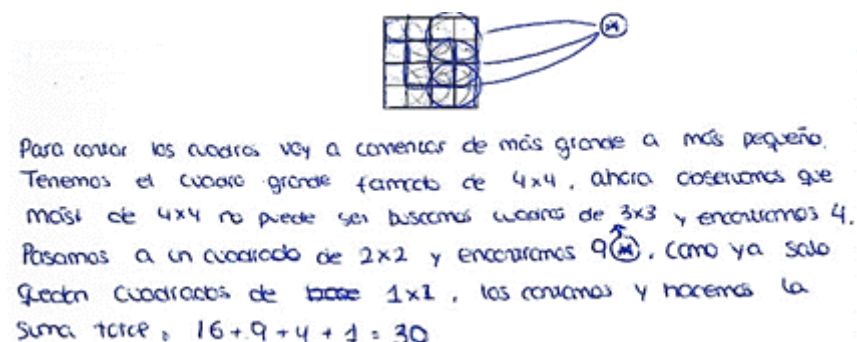 Para contar los cuadros voy a comenzar de más grande a más pequeño.
Tenemos el cuadro grande formado de 4x4, ahora observamos que
más de 4x4 no puede ser buscamos cuadros de 3x3 y encontramos 4.
Pasamos a un cuadrado de 2x2 y encontramos 9(*). Como ya solo
quedan cuadrados de 1x1, los contamos y hacemos la
suma total, 16+9+4+1=30